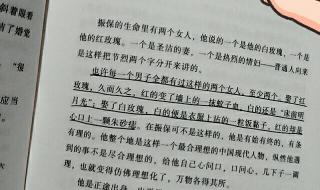 斜着眼看
有了婚变
“很
应当
振保的生命里有两个女人，他说的一个是他的白玫瑰，一个是
他的红玫瑰。一个是圣洁的妻，一个是热烈的情妇——普通人向来
是这样把节烈两个字分开来讲的。
也许每一个男子全都有过这样的两个女人，至少两个。娶了红
玫瑰，久而久之，红的变了墙上的一抹蚊子血，白的还是“床前明
月光”；娶了白玫瑰，白的便是衣服上沾的一粒饭黏子，红的却是
心口上一颗朱砂痣。在振保可不是这样的，他是有始有终的，有条
有理的。他整个地是这样一个最合理想的中国现代人物，纵然他遇
到的事不是尽合理想的，给他自己心问口，口问心，几下子一调
理，也就变得仿佛理想化了，万物各得其所。
他是正途出身，出